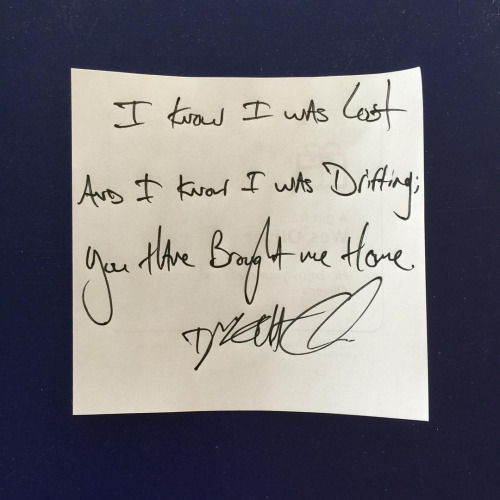 I know I was Lost
And I know I was Drifting;
You Have Brought me Home.